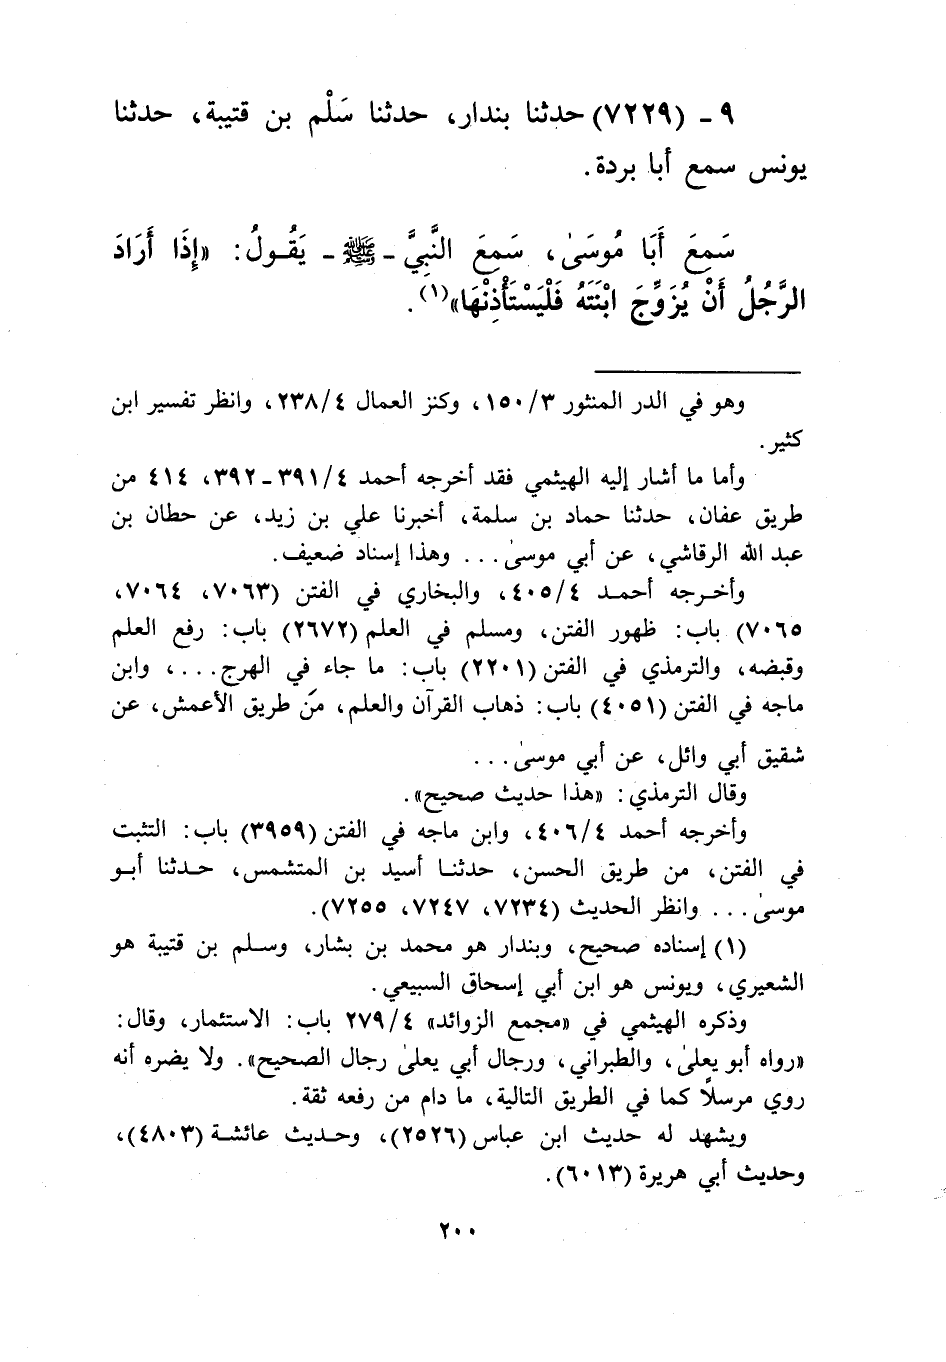 ٩ - (٧٢٢٩) حدثنا بندار، حدثنا سَلْم بن قتيبة، حدثنا
يونس سمع أبا بردة.
سَمِعَ أَبَا مُوسَىٰ، سَمِعَ النَّبِيَّ - ﷺ - يَقُولُ: «إِذَا أَرَادَ
الرَّجُلُ أَنْ يُزَوِّجَ ابْنَتَهُ فَلْيَسْتَأْذِنْهَا»(١).
وهو في الدر المنثور ١٥٠/٣، وكنز العمال ٢٣٨/٤، وانظر تفسير ابن
كثير.
وأما ما أشار إليه الهيثمي فقد أخرجه أحمد ٣٩١/٤ - ٣٩٢، ٤١٤ من
طريق عفان، حدثنا حماد بن سلمة، أخبرنا علي بن زيد، عن حطان بن
عبد الله الرقاشي، عن أبي موسىٰ... وهذا إسناد ضعيف.
وأخرجه أحمد ٤٠٥/٤، والبخاري في الفتن (٧٠٦٣، ٧٠٦٤،
٧٠٦٥) باب: ظهور الفتن، ومسلم في العلم (٢٦٧٢) باب: رفع العلم
وقبضه، والترمذي في الفتن (٢٢٠١) باب: ما جاء في الهرج...، وابن
ماجه في الفتن (٤٠٥١) باب: ذهاب القرآن والعلم، من طريق الأعمش، عن
شقيق أبي وائل، عن أبي موسىٰ...
وقال الترمذي: «هذا حديث صحيح».
وأخرجه أحمد ٤٠٦/٤، وابن ماجه في الفتن (٣٩٥٩) باب: التثبت
في الفتن، من طريق الحسن، حدثنا أسيد بن المتشمس، حدثنا أبو
موسىٰ... وانظر الحديث (٧٢٣٤، ٧٢٤٧، ٧٢٥٥).
(١) إسناده صحيح، وبندار هو محمد بن بشار، وسلم بن قتيبة هو
الشعيري، ويونس هو ابن أبي إسحاق السبيعي.
وذكره الهيثمي في «مجمع الزوائد» ٢٧٩/٤ باب: الاستئمار، وقال:
«رواه أبو يعلىٰ، والطبراني، ورجال أبي يعلىٰ رجال الصحيح». ولا يضره أنه
روي مرسلاً كما في الطريق التالية، ما دام من رفعه ثقة.
ويشهد له حديث ابن عباس (٢٥٢٦)، وحديث عائشة (٤٨٠٣)،
وحديث أبي هريرة (٦٠١٣).
٢٠٠